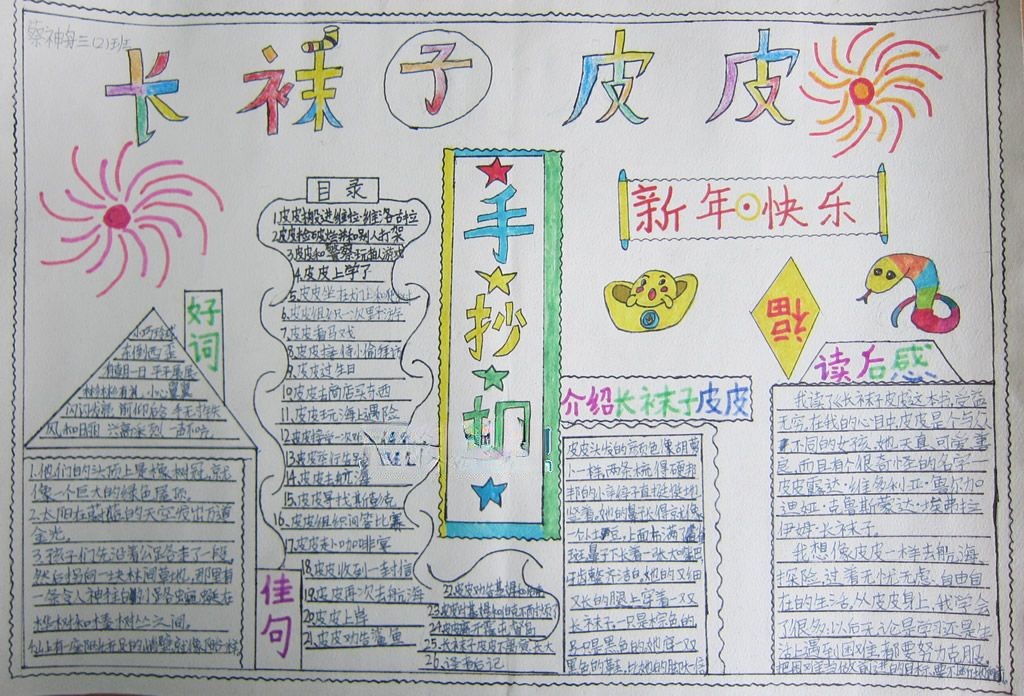 三(2)班
长袜子皮皮
手抄
新年快乐
福
目录
3.皮皮和警察玩追人游戏
4.皮皮上学了
5.皮皮坐在大门上和
7.皮皮看马戏
8.皮皮接待小偷拜访
9.皮皮过生日
10皮皮去商店买东西
11.皮皮玩海上遇险
13.皮皮
14.皮皮去航海
15.皮皮寻找斯彭克
16.皮皮组织问答比赛
17.皮皮
18.皮皮收到一封信
19.皮皮再次去航海
20.皮皮上岸
21.皮皮对付鲨鱼
25.长袜子皮皮不愿意长大
26.译者后记
好词
小巧玲珑
东倒西歪
有朝一日 平平展展
彬彬有礼 小心翼翼
风和日丽 兴高采烈 一声不吭
佳句
1.他们的头顶上是橡树冠,就
像一个巨大的绿色屋顶。
2.太阳在蔚蓝的天空发出万道
金光。
3.孩子们先沿着公路走了一段,
然后拐向一块林间草地,那里有
一条令人神往的小路
桦树和榛树丛之间。
介绍长袜子皮皮
皮皮头发的颜色像胡萝
卜一样,两条梳得硬邦
邦的小辫子直挺挺地
竖着,她的鼻子长得就像
一个小土豆,上面布满了雀
斑,鼻子下长着一张大嘴巴,
牙齿整齐洁白,她的又细
又长的腿上穿着一双
长袜子,一只是棕色的,
另一只是黑色的,她穿一双
黑色的鞋,比她的脚大一倍
读后感
我读了《长袜子皮皮》这本书,受益
无穷,在我的心目中,皮皮是个与众
不同的女孩,她天真、可爱、善
良,而且有个很奇怪的名字——
皮皮露达·维多利亚·鲁尔加
迪娅·克鲁斯蒙达·埃弗拉
伊姆·长袜子。
我想像皮皮一样去航海、
探险,过着无忧无虑、自由自
在的生活,从皮皮身上,我学会
了很多,以后无论是学习还是生
活上遇到困难都要努力克服,